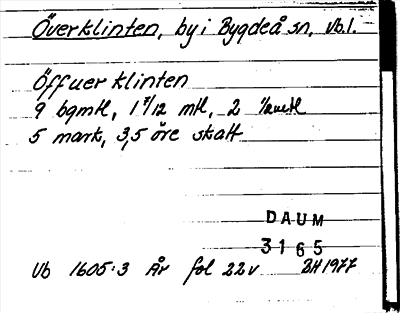 Överklinten, by i Bygdeå sn, Vb.l.
Öffuer klinten
9 bgmtl, 1 7/12 mtl, 2
5 mark, 3,5 öre skatt
DAUM
3165
Vb 1605:3 År fol 22v BH 1977